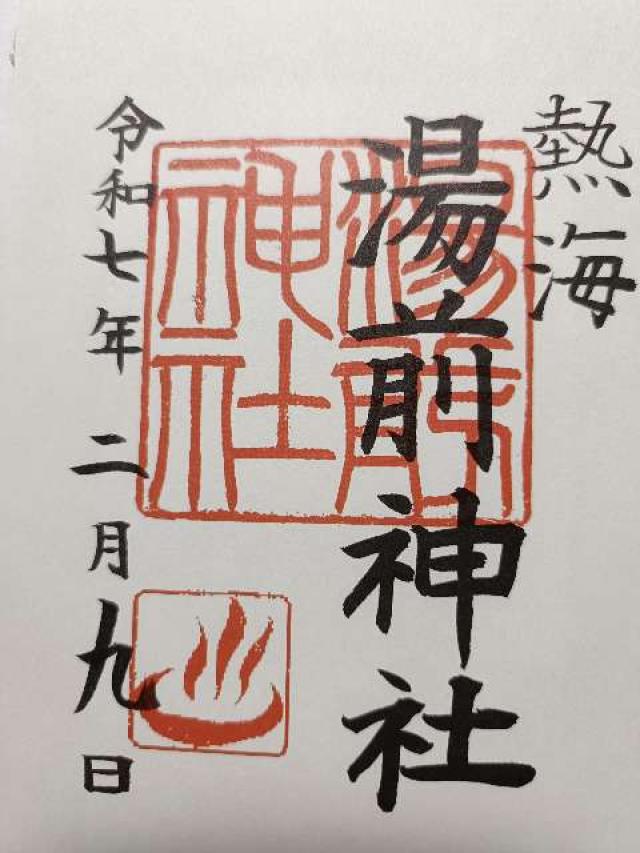 熱海
湯前神社
湯前神社
令和七年 二月九日